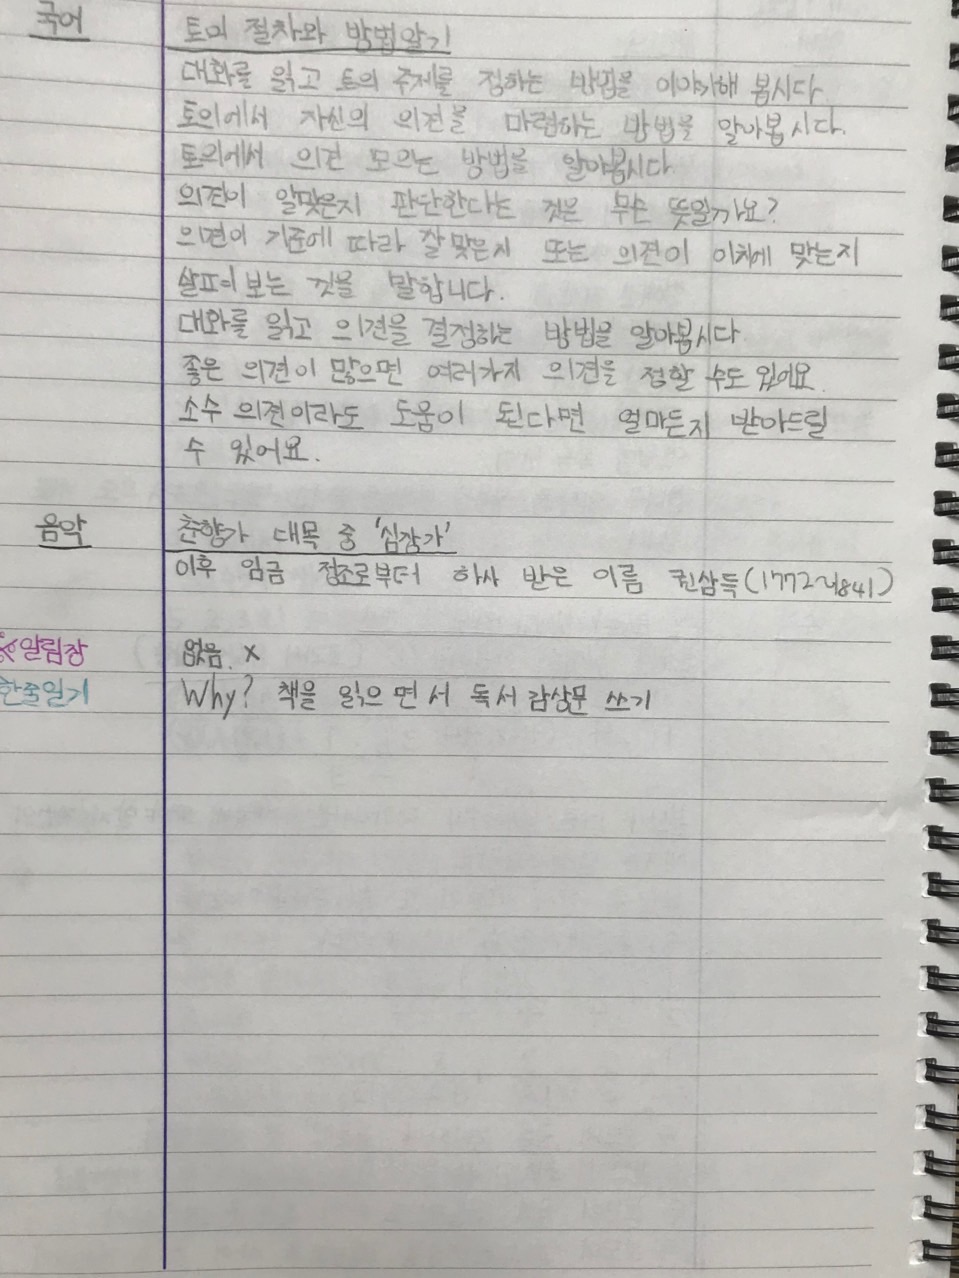 국어 토의 절차와 방법알기
대화를 읽고 토의 주제를 정하는 방법을 이야기해 봅시다.
토의에서 자신의 의견을 마련하는 방법을 알아봅시다.
토의에서 의견 모으는 방법을 알아봅시다
의견이 알맞은지 판단한다는 것은 무슨 뜻일까요?
의견이 기준에 따라 잘맞은지 또는 의견이 이치에 맞는지
살펴 보는 것을 말합니다.
대화를 읽고 의견을 결정하는 방법을 알아봅시다.
좋은 의견이 많으면 여러가지 의견을 정할 수도 있어요.
소수 의견이라도 도움이 된다면 얼마든지 받아드릴
수 있어요.
음악 춘향가 대목 중
이후 임금 정조로부터 하사 받은 이름 권삼득(1772~1841)
알림장 없음. x
한줄일기 Why? 책을 읽으면서 독서 감상문 쓰기